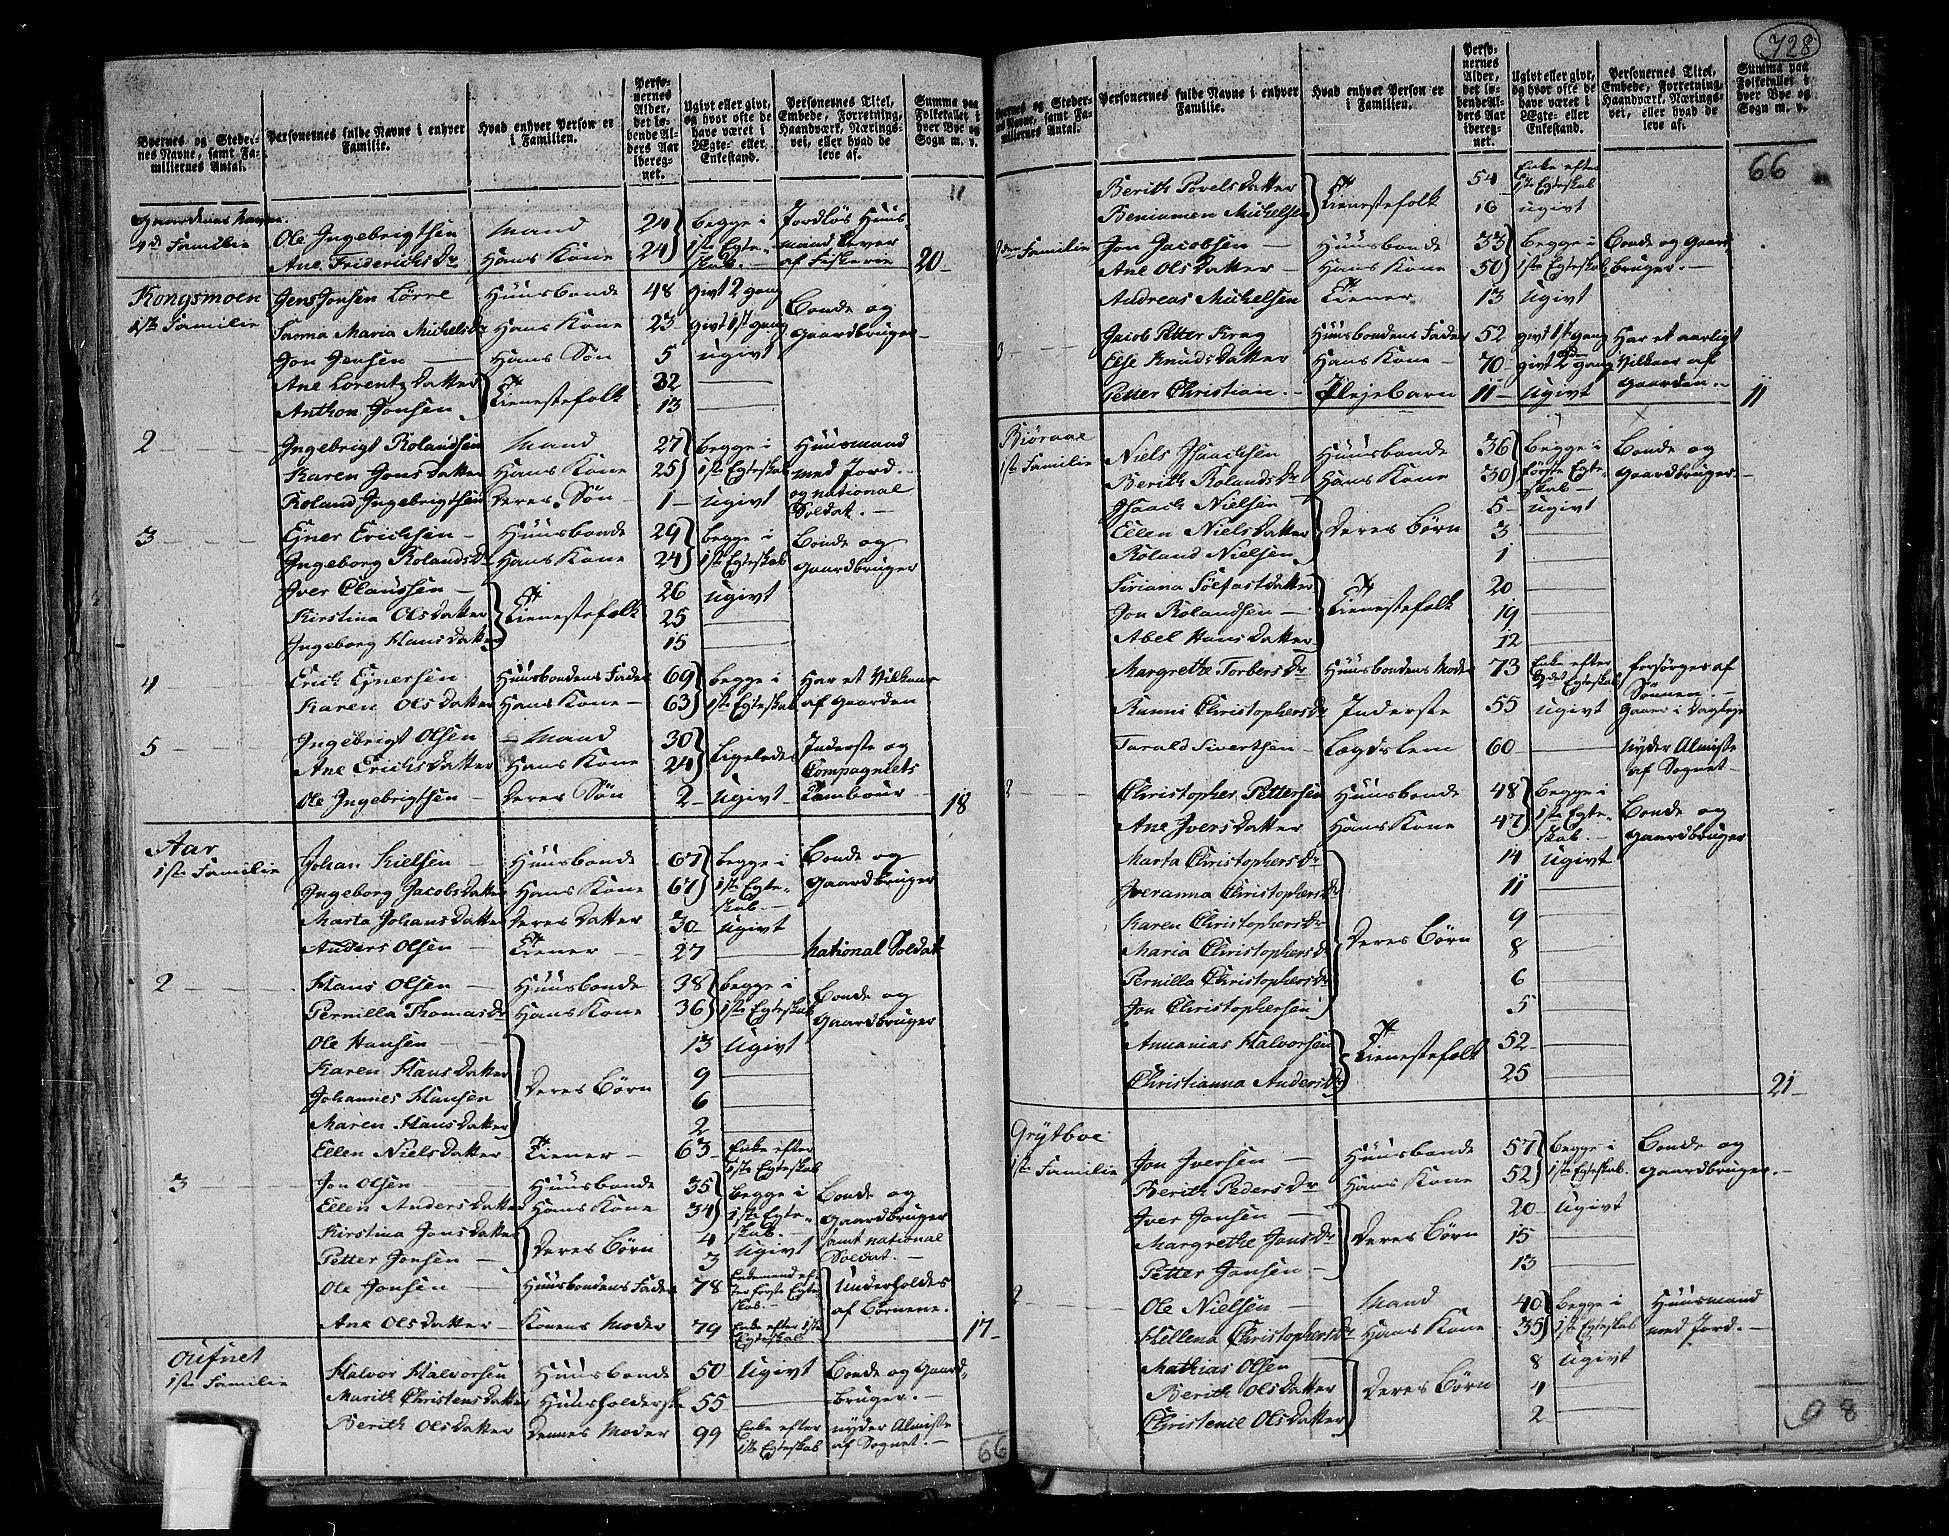 728
Byernes og Stedernes Navne, samt Familiernes Antal. | Personernes fulde Navne i enhver Familie. | Hvad enhver Person er i Familien. | Personernes Alder, det løbende Alders Aar iberegnet. | Ugivt eller givt, og hvor ofte de have været i Ægte- eller Enkestand. | Personernes Titel, Embede, Forretning, Haandværk, Næringsvei, eller hvad de leve af. | Summa paa Folketallet i hver Bye og Sogn m. v.
11
Gaardenes Navne.
4de Familie | Ole Ingebrigtsen | Mand | 24 | begge i 1ste Egteskab. | Jordløs Huusmand lever af Fiskerie
Ane Friderichs Dr | Hans Kone | 24 | 20
Kongsmoen
1ste Familie | Jens Jonsen Lørre | Huusbonde | 48 | givt 2 gang | Bonde og Gaardbruger
Maria Michels Dr | Hans Kone | 23 | givt 1st gang
Jon Jensen | Hans Søn | 5 | ugivt
Ane Lorentz Datter | Tienestefolk | 32
Anthon Jonsen | 13
2 | Ingebrigt Rolandsen | Mand | 27 | begge i 1ste Egteskab | Huusmand med Jord. og national Soldat.
Karen Jons Datter | Hans Kone | 25
Roland Ingebrigtsen | Deres Søn | 1 | ugivt
3 | Ejner Erichsen | Huusbonde | 29 | begge i 1ste Egteskab | Bonde og Gaardbruger
Ingeborg Rolands Dr | Hans Kone | 24
Iver Clausen | Tienestefolk | 26 | ugivt
Kirstina Ols Datter | 25
Ingeborg Hans Datter | 15
4 | Erich Ejnersen | Huusbondens Fader | 69 | begge i 1ste Egteskab | Har et Vilkaar af Gaarden
Karen Ols Datter | Hans Kone | 63
5 | Ingebrigt Olsen | Mand | 30 | Ligeledes | Inderste og Compagniets Tambour
Ane Erichs Datter | Hans Kone | 24
Ole Ingebrigtsen | Deres Søn | 2 | Ugivt | 18
Aar
1ste Familie | Johan Kielsen | Huusbonde | 67 | begge i 1ste Egteskab. | Bonde og Gaardbruger
Ingeborg Jacobs Datter | Hans Kone | 67
Marta Johans Datter | Deres Datter | 30 | Ugivt
Anders Olsen | Tiener | 27 | National Soldat
2 | Hans Olsen | Huusbonde | 38 | begge i 1ste Egteskab | Bonde og Gaardbruger
Pernilla Thomas Dr | Hans Kone | 36
Ole Hansen | Deres Børn | 13 | Ugivt
Karen Hans Datter | 9
Johannes Hansen | 6
Maren Hans Datter | 2
Ellen Niels Datter | Tiener | 63 | Enke efter 1ste Egteskab
3 | Jon Olsen | Huusbonde | 35 | begge i 1ste Egteskab. | Bonde og Gaardbruger samt national Soldat.
Ellen Anders Datter | Hans Kone | 34
Kirstina Jons Datter | Deres Børn | 4 | Ugivt
Petter Jonsen | 3
Ole Jonsen | Huusbondens Fader | 78 | Enkemand efter første Egteskab. | Underholdes af Børnene.
Ane Ols Datter | Konens Moder | 79 | Enke efter 1ste Egteskab | 17
Aufnet
1ste Familie | Halvor Halvorsen | Huusbonde | 50 | Ugivt | Bonde og Gaardbruger.
Marith Christens Datter | Huusholderske | 55
Berith Ols Datter | Dennes Moder | 99 | Enke efter 1ste Egteskab | nyder Almisse af Sognet.
66
Byernes og Stedernes Navne, samt Familiernes Antal. | Personernes fulde Navne i enhver Familie. | Hvad enhver Person er i Familien. | Personernes Alder, det løbende Alders Aar iberegnet. | Ugivt eller givt, og hvor ofte de have været i Ægte- eller Enkestand. | Personernes Titel, Embede, Forretning, Haandværk, Næringsvei, eller hvad de leve af. | Summa paa Folketallet i hver Bye og Sogn m. v.
66
Berith Povels Datter | Tienestefolk | 54 | Enke efter 1ste Egteskab
Beniamen Michelsen | 16 | ugivt
2den Familie | Jon Jacobsen | Huusbonde | 33 | begge i 1ste Egteskab | Bonde og Gaardbruger.
Ane Ols Datter | Hans Kone | 50
Andreas Michelsen | Tiener | 13 | Ugivt
3 | Jacob Petter Krag | Huusbondens Fader | 52 | givt 1st gang | Har et aarligt Vilkaar af Gaarden.
Else Knuds Datter | Hans Kone | 70 | givt 2den gang
Petter Christian | Plejebarn | 11 | Ugivt | 11
Biøraae
1ste Familie | Niels Isaachsen | Huusbonde | 36 | begge i første Egteskab | Bonde og Gaardbruger
Berith Rolands Dr | Hans Kone | 30
Isaach Nielsen | Deres Børn | 5 | Ugivt
Ellen Niels Datter | 3
Roland Nielsen | 1
Siriana Sølfast Datter | Tienestefolk | 20
Jon Rolandsen | 19
Abel Hans Datter | 12
Margrethe Torbers Dr | Huusbondens Moder | 73 | Enke efter 2det Egteskab | forsørges af Sønnen.
Ranni Christophers Dr | Inderste | 55 | Ugivt | Gaaer i Dagleje
Tarald Siverthsen | Lægdslem | 60 | nyder Almisse af Sognet
2 | Christopher Pettersen | Huusbonde | 48 | Begge i 1ste Egteskab. | Bonde og Gaardbruger
Ane Ivers Datter | Hans Kone | 47
Marta Christophers Dr | Deres Børn | 14 | Ugivt
Iveranna Christophers Dr | 11
Karen Christophers Dr | 9
Maria Christophers Dr | 8
Pernilla Christophers Dr | 6
Jon Christophersen | 5
Annanias Halvorsen | Tienestefolk | 52
Christianna Anders Dr | 25 | 21
Grytboe
1ste Familie | Jon Iversen | Huusbonde | 57 | begge i 1ste Egteskab. | Bonde og Gaardbruger.
Berith Peders Dr | Hans Kone | 52
Iver Jonsen | Deres Børn | 20 | Ugivt
Margrethe Jons Dr | 15
Petter Jonsen | 13
2 | Ole Nielsen | Mand | 40 | begge i 1ste Egteskab | Huusmand med Jord.
Hellena Christophers Dr | Hans Kone | 35
Mathias Olsen | Deres Børn | 8 | Ugivt
Berith Ols Datter | 4
Christenil Ols Datter | 2
98